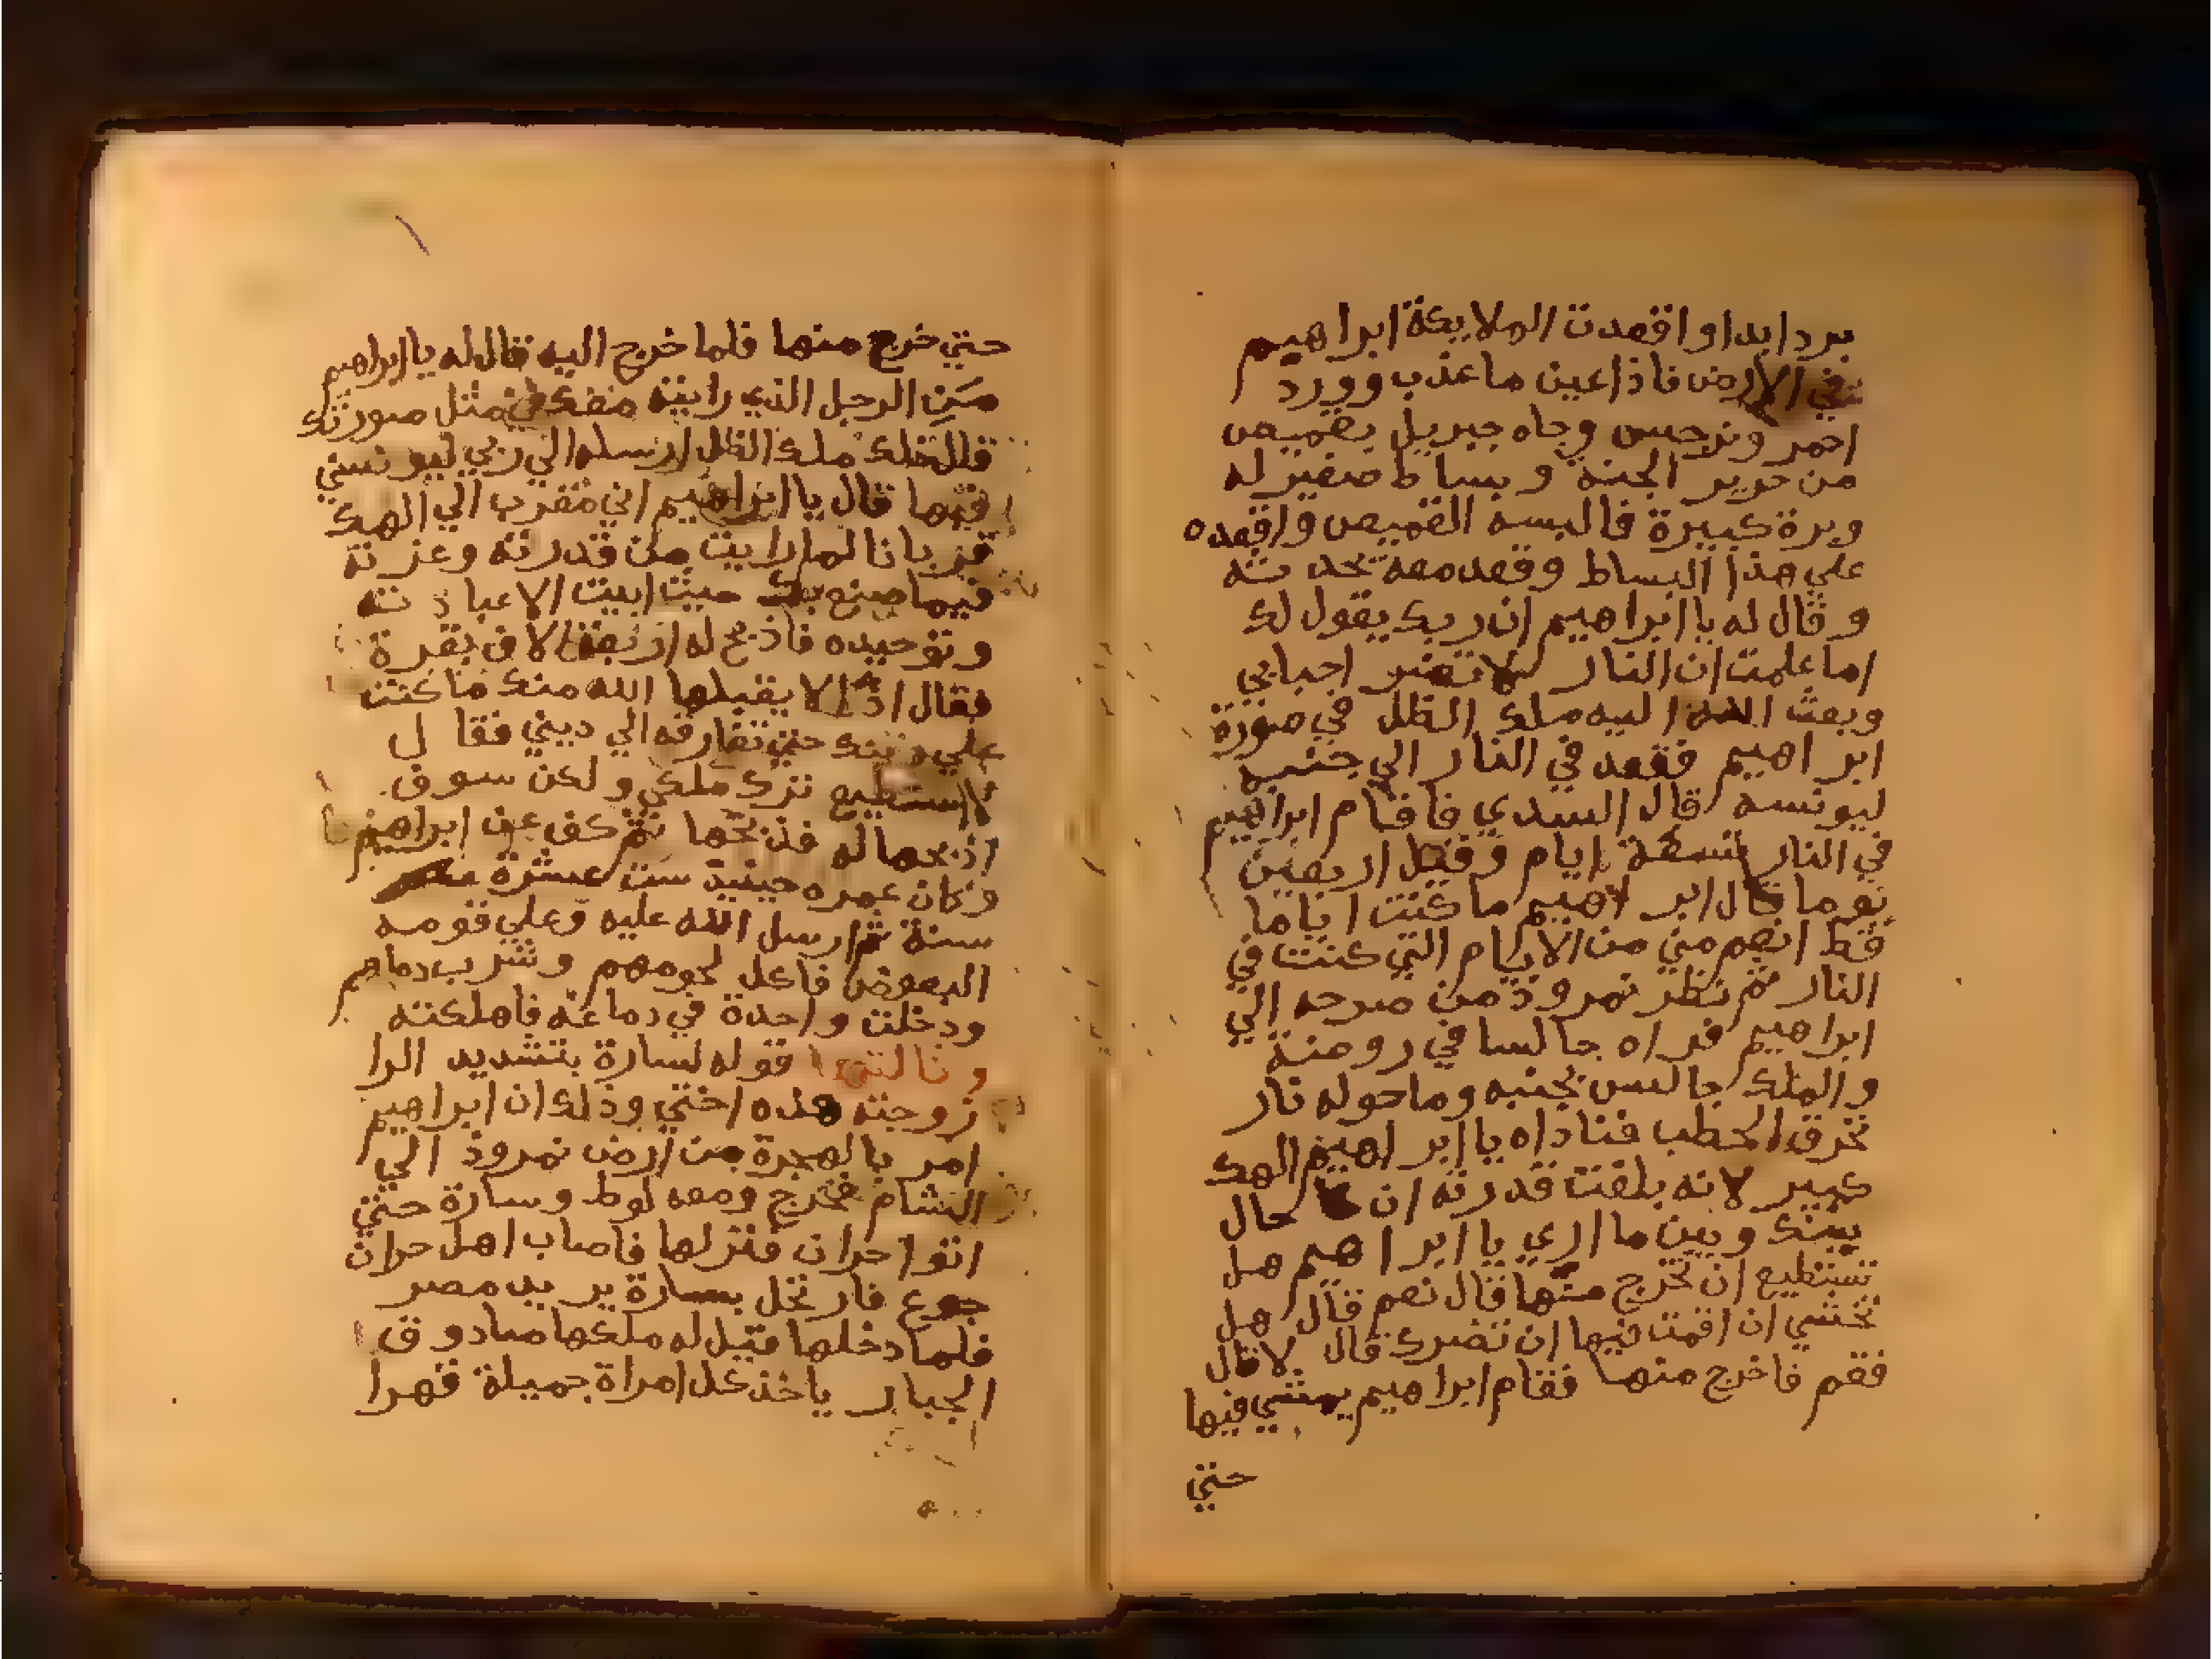 بردا ابدا واقعدت الملايكة ابراهيم
في الارض فاذا عين ما عذب وورد
احمر ونرجس وجاه جبريل بقميص
من حرير الجنة وبساط صغير له
وبرة كبيرة فالبسه القميص واقعده
علي هذا البساط وقعد معه يحدثه
وقال له يا ابراهيم ان ربك يقول لك
اما علمت ان النار لا تضر احبابي
وبعث الله اليه ملك الظل في صورة
ابراهيم فقعد في النار الي جنبه
ليونسه قال السدي فاقام ابراهيم
في النار سبعة ايام وقيل اربعين
يوما قال ابراهيم ما كنت اياما
قط انعم مني من الايام التي كنت في
النار ثم نظر نمروذ من صرحه الي
ابراهيم فراه جالسا في روضة
والملك جالس بجنبه وما حوله نار
تحرق الحطب فناداه يا ابراهيم الهك
كبير لانه بلغت قدرته ان حال
بينك وبين ما اري يا ابراهيم هل
تستطيع ان تخرج منها قال نعم قال هل
تخشي ان اقمت فيها ان تضرك قال لا قال
فقم فاخرج منها فقام ابراهيم يمشي فيها
حتي
حتي خرج منها فلما خرج اليه قال له يا ابراهيم
من الرجل الذي رايته معك في مثل صورتك
قال ذلك ملك الظل ارسله الي ربي ليونسني
فيها قال يا ابراهيم اني مقرب الي الهك
قربانا لما رايت من قدرته وعزته
فيما صنع بك حيث ابيت الا عبادته
وتوحيده فاذبح له اربعة الاف بقرة
فقال اذا لا يقبلها الله منك ما كنت
علي دينك حتي تفارقه الي ديني فقال
لا استطيع ترك ملكي ولكن سوف
اذبحها له فذبحها ثم كف عن ابراهيم
وكان عمره حينيذ ست عشرة
سنة ثم ارسل الله عليه وعلي قومه
البعوض فاكل لحومهم وشرب دماهم
ودخلت واحدة في دماغه فاهلكته
وثالثها قوله لسارة بتشديد الرا
زوجته هذه اختي وذلك ان ابراهيم
امر بالهجرة من ارض نمروذ الي
الشام فخرج ومعه لوط وسارة حتي
اتوا حران فنزلها فاصاب اهل حران
جوع فارتحل بسارة يريد مصر
فلما دخلها قيل له ملكها صادوق
الجبار ياخذ كل امراة جميلة قهرا